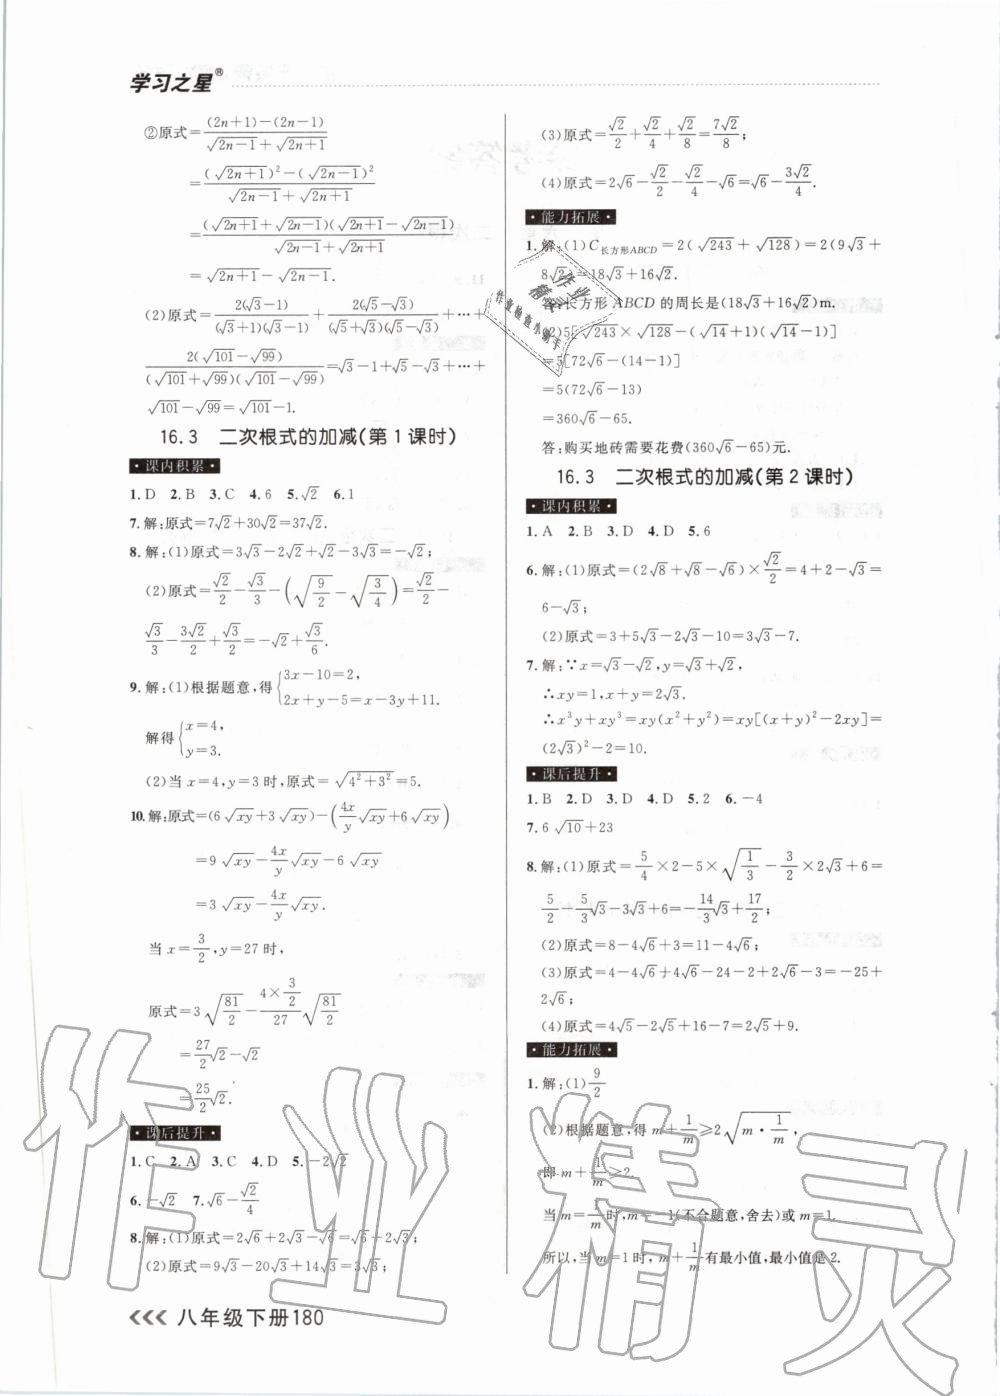 学习之星®
②原式=\frac{(2n+1)-(2n-1)}{\sqrt{2n-1}+\sqrt{2n+1}}
=\frac{(\sqrt{2n+1})^2-(\sqrt{2n-1})^2}{\sqrt{2n-1}+\sqrt{2n+1}}
=\frac{(\sqrt{2n+1}+\sqrt{2n-1})(\sqrt{2n+1}-\sqrt{2n-1})}{\sqrt{2n-1}+\sqrt{2n+1}}
=\sqrt{2n+1}-\sqrt{2n-1}.
(2)原式=\frac{2(\sqrt{3}-1)}{(\sqrt{3}+1)(\sqrt{3}-1)}+\frac{2(\sqrt{5}-\sqrt{3})}{(\sqrt{5}+\sqrt{3})(\sqrt{5}-\sqrt{3})}+…+
\frac{2(\sqrt{101}-\sqrt{99})}{(\sqrt{101}+\sqrt{99})(\sqrt{101}-\sqrt{99})}=\sqrt{3}-1+\sqrt{5}-\sqrt{3}+…+
\sqrt{101}-\sqrt{99}=\sqrt{101}-1.
16.3 二次根式的加减(第1课时)
·课内积累·
1.D 2.B 3.C 4.6 5.√2 6.1
7.解:原式=7√2+30√2=37√2.
8.解:(1)原式=3√3-2√2+√2-3√3=-√2;
(2)原式=\frac{\sqrt{2}}{2}-\frac{\sqrt{3}}{3}-(\sqrt{\frac{9}{2}}-\sqrt{\frac{3}{4}})=\frac{\sqrt{2}}{2}-
\frac{\sqrt{3}}{3}-\frac{3\sqrt{2}}{2}+\frac{\sqrt{3}}{2}=-√2+\frac{\sqrt{3}}{6}.
9.解:(1)根据题意,得{3x-10=2,
2x+y-5=x-3y+11.
解得{x=4,
y=3.
(2)当x=4,y=3时,原式=\sqrt{4^2+3^2}=5.
10.解:原式=(6\sqrt{xy}+3\sqrt{xy})-(\frac{4x}{y}\sqrt{xy}+6\sqrt{xy})
=9\sqrt{xy}-\frac{4x}{y}\sqrt{xy}-6\sqrt{xy}
=3\sqrt{xy}-\frac{4x}{y}\sqrt{xy}.
当x=\frac{3}{2},y=27时,
原式=3\sqrt{\frac{81}{2}}-\frac{4×\frac{3}{2}}{27}\sqrt{\frac{81}{2}}
=\frac{27}{2}√2-√2
=\frac{25}{2}√2.
·课后提升·
1.C 2.A 3.C 4.D 5.-2√2
6.-√2 7.√6-\frac{\sqrt{2}}{4}
8.解:(1)原式=2√6+2√3-√6=√6+2√3;
(2)原式=9√3-20√3+14√3=3√3;
(3)原式=\frac{\sqrt{2}}{2}+\frac{\sqrt{2}}{4}+\frac{\sqrt{2}}{8}=\frac{7\sqrt{2}}{8};
(4)原式=2√6-\frac{\sqrt{2}}{2}-\frac{\sqrt{2}}{4}-√6=√6-\frac{3\sqrt{2}}{4}.
·能力拓展·
1.解:(1)C长方形ABCD=2(\sqrt{243}+\sqrt{128})=2(9√3+
8√2)=18√3+16√2.
答:长方形ABCD的周长是(18√3+16√2)m.
(2)5[\sqrt{243}×\sqrt{128}-(\sqrt{14}+1)(\sqrt{14}-1)]
=5[72√6-(14-1)]
=5(72√6-13)
=360√6-65.
答:购买地砖需要花费(360√6-65)元.
16.3 二次根式的加减(第2课时)
·课内积累·
1.A 2.B 3.D 4.D 5.6
6.解:(1)原式=(2√8+√8-√6)×\frac{\sqrt{2}}{2}=4+2-√3=
6-√3;
(2)原式=3+5√3-2√3-10=3√3-7.
7.解:∵x=√3-√2,y=√3+√2,
∴xy=1,x+y=2√3.
∴x³y+xy³=xy(x²+y²)=xy[(x+y)²-2xy]=
(2√3)²-2=10.
·课后提升·
1.B 2.D 3.D 4.D 5.2 6.-4
7.6√10+23
8.解:(1)原式=\frac{5}{4}×2-5×\sqrt{\frac{1}{3}}-\frac{3}{2}×2√3+6=
\frac{5}{2}-\frac{5}{3}√3-3√3+6=-\frac{14}{3}√3+\frac{17}{2};
(2)原式=8-4√6+3=11-4√6;
(3)原式=4-4√6+4√6-24-2+2√6-3=-25+
2√6;
(4)原式=4√5-2√5+16-7=2√5+9.
·能力拓展·
1.解:(1)\frac{9}{2}
(2)根据题意,得m+\frac{1}{m}≥2\sqrt{m·\frac{1}{m}},
即m+\frac{1}{m}≥2.
当m=\frac{1}{m}时,m=-1(不合题意,舍去)或m=1.
所以,当m=1时,m+\frac{1}{m}有最小值,最小值是2.
作业
精灵
作业检查小助手
作业精灵
八年级下册180